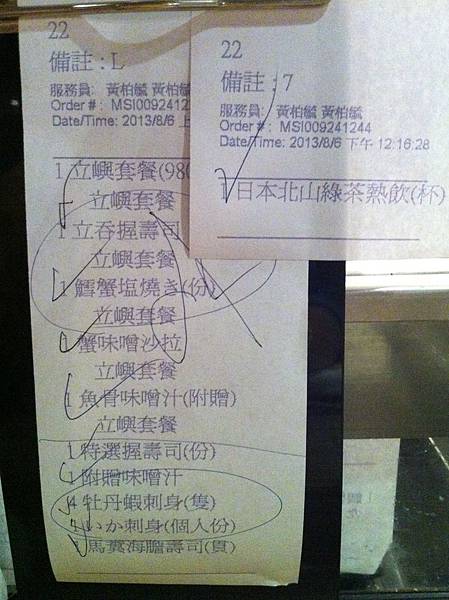 22
備註 : L
服務員: 黃柏毓 黃柏
Order # : MSI0092412
Date/Time: 2013/8/6 上
1 立嶼套餐(980
立嶼套餐
1 立吞握壽司
立嶼套餐
1 鱈蟹塩燒き(份)
立嶼套餐
1 蟹味噌沙拉
立嶼套餐
1 魚骨味噌汁(附贈)
立嶼套餐
1 特選握壽司(份)
1 附贈味噌汁
4 牡丹蝦刺身(隻)
いか刺身(個人份)
1 馬糞海膽壽司(貫)
22
備註 : 7
服務員: 黃柏毓 黃柏毓
Order # : MSI009241244
Date/Time: 2013/8/6 下午 12:16:28
1 日本北山綠茶熱飲(杯)